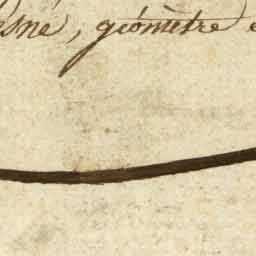 esne, géomètre